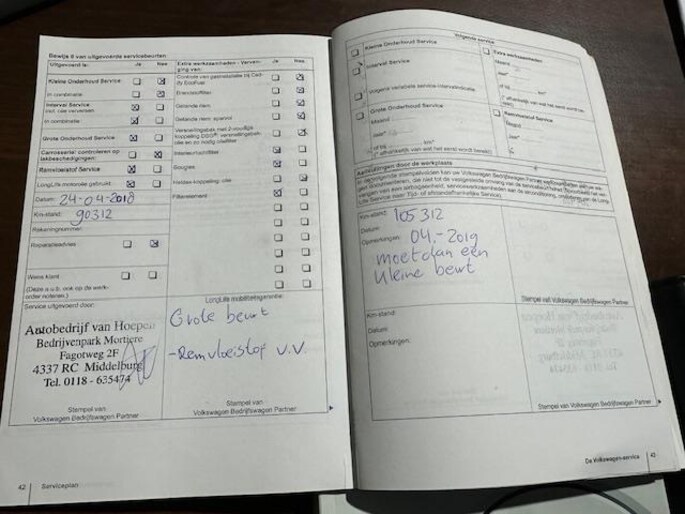 Bewijs 8 van uitgevoerde servicebeurten
Uitgevoerd is: Ja Nee
Kleine Onderhoud Service:
In combinatie
Interval Service
incl. olie verversen
In combinatie
Grote Onderhoud Service:
Carrosserie controleren op
lakbeschadigingen:
Remvloeistof Service
LongLife motorolie gebruikt:
Datum: 24-04-2018
Km-stand: 90312
Rekeningnummer:
Reparatieadvies
Wens klant
(Deze a.u.b. ook op de werk-
order noteren.)
Extra werkzaamheden - Vervan-
ging van: Ja Nee
Brandstoffilter:
Getande riem:
Getande riem: spanrol
Interieurluchtfilter:
Bougies:
Haldex-koppeling: olie
Filterelement
Service uitgevoerd door:
Autobedrijf van Hoepen
Bedrijvenpark Mortiere
Fagotweg 2F
4337 RC Middelburg
Tel. 0118 - 635474
Stempel van
Volkswagen Bedrijfswagen Partner
LongLife mobiliteitsgarantie:
Grote beurt
-Remvloeistof v.v.
Stempel van
Volkswagen Bedrijfswagen Partner
42 Serviceplan
Volgende service
Kleine Onderhoud Service
Interval Service
Volgens variabele service-intervalindicatie
Grote Onderhoud Service
Maand
Jaar*
of bij km*
(* afhankelijk van wat het eerst wordt bereikt.)
Extra werkzaamheden
Maand
Jaar*
of bij
Remvloeistof Service
Aanduidingen door de werkplaats
Km-stand: 105 312
Datum:
Opmerkingen: 04.-2019
moet dan een
kleine beurt
Stempel van Volkswagen Bedrijfswagen Partner
Km-stand:
Datum:
Opmerkingen:
Stempel van Volkswagen Bedrijfswagen Partner
De Volkswagen-service 43